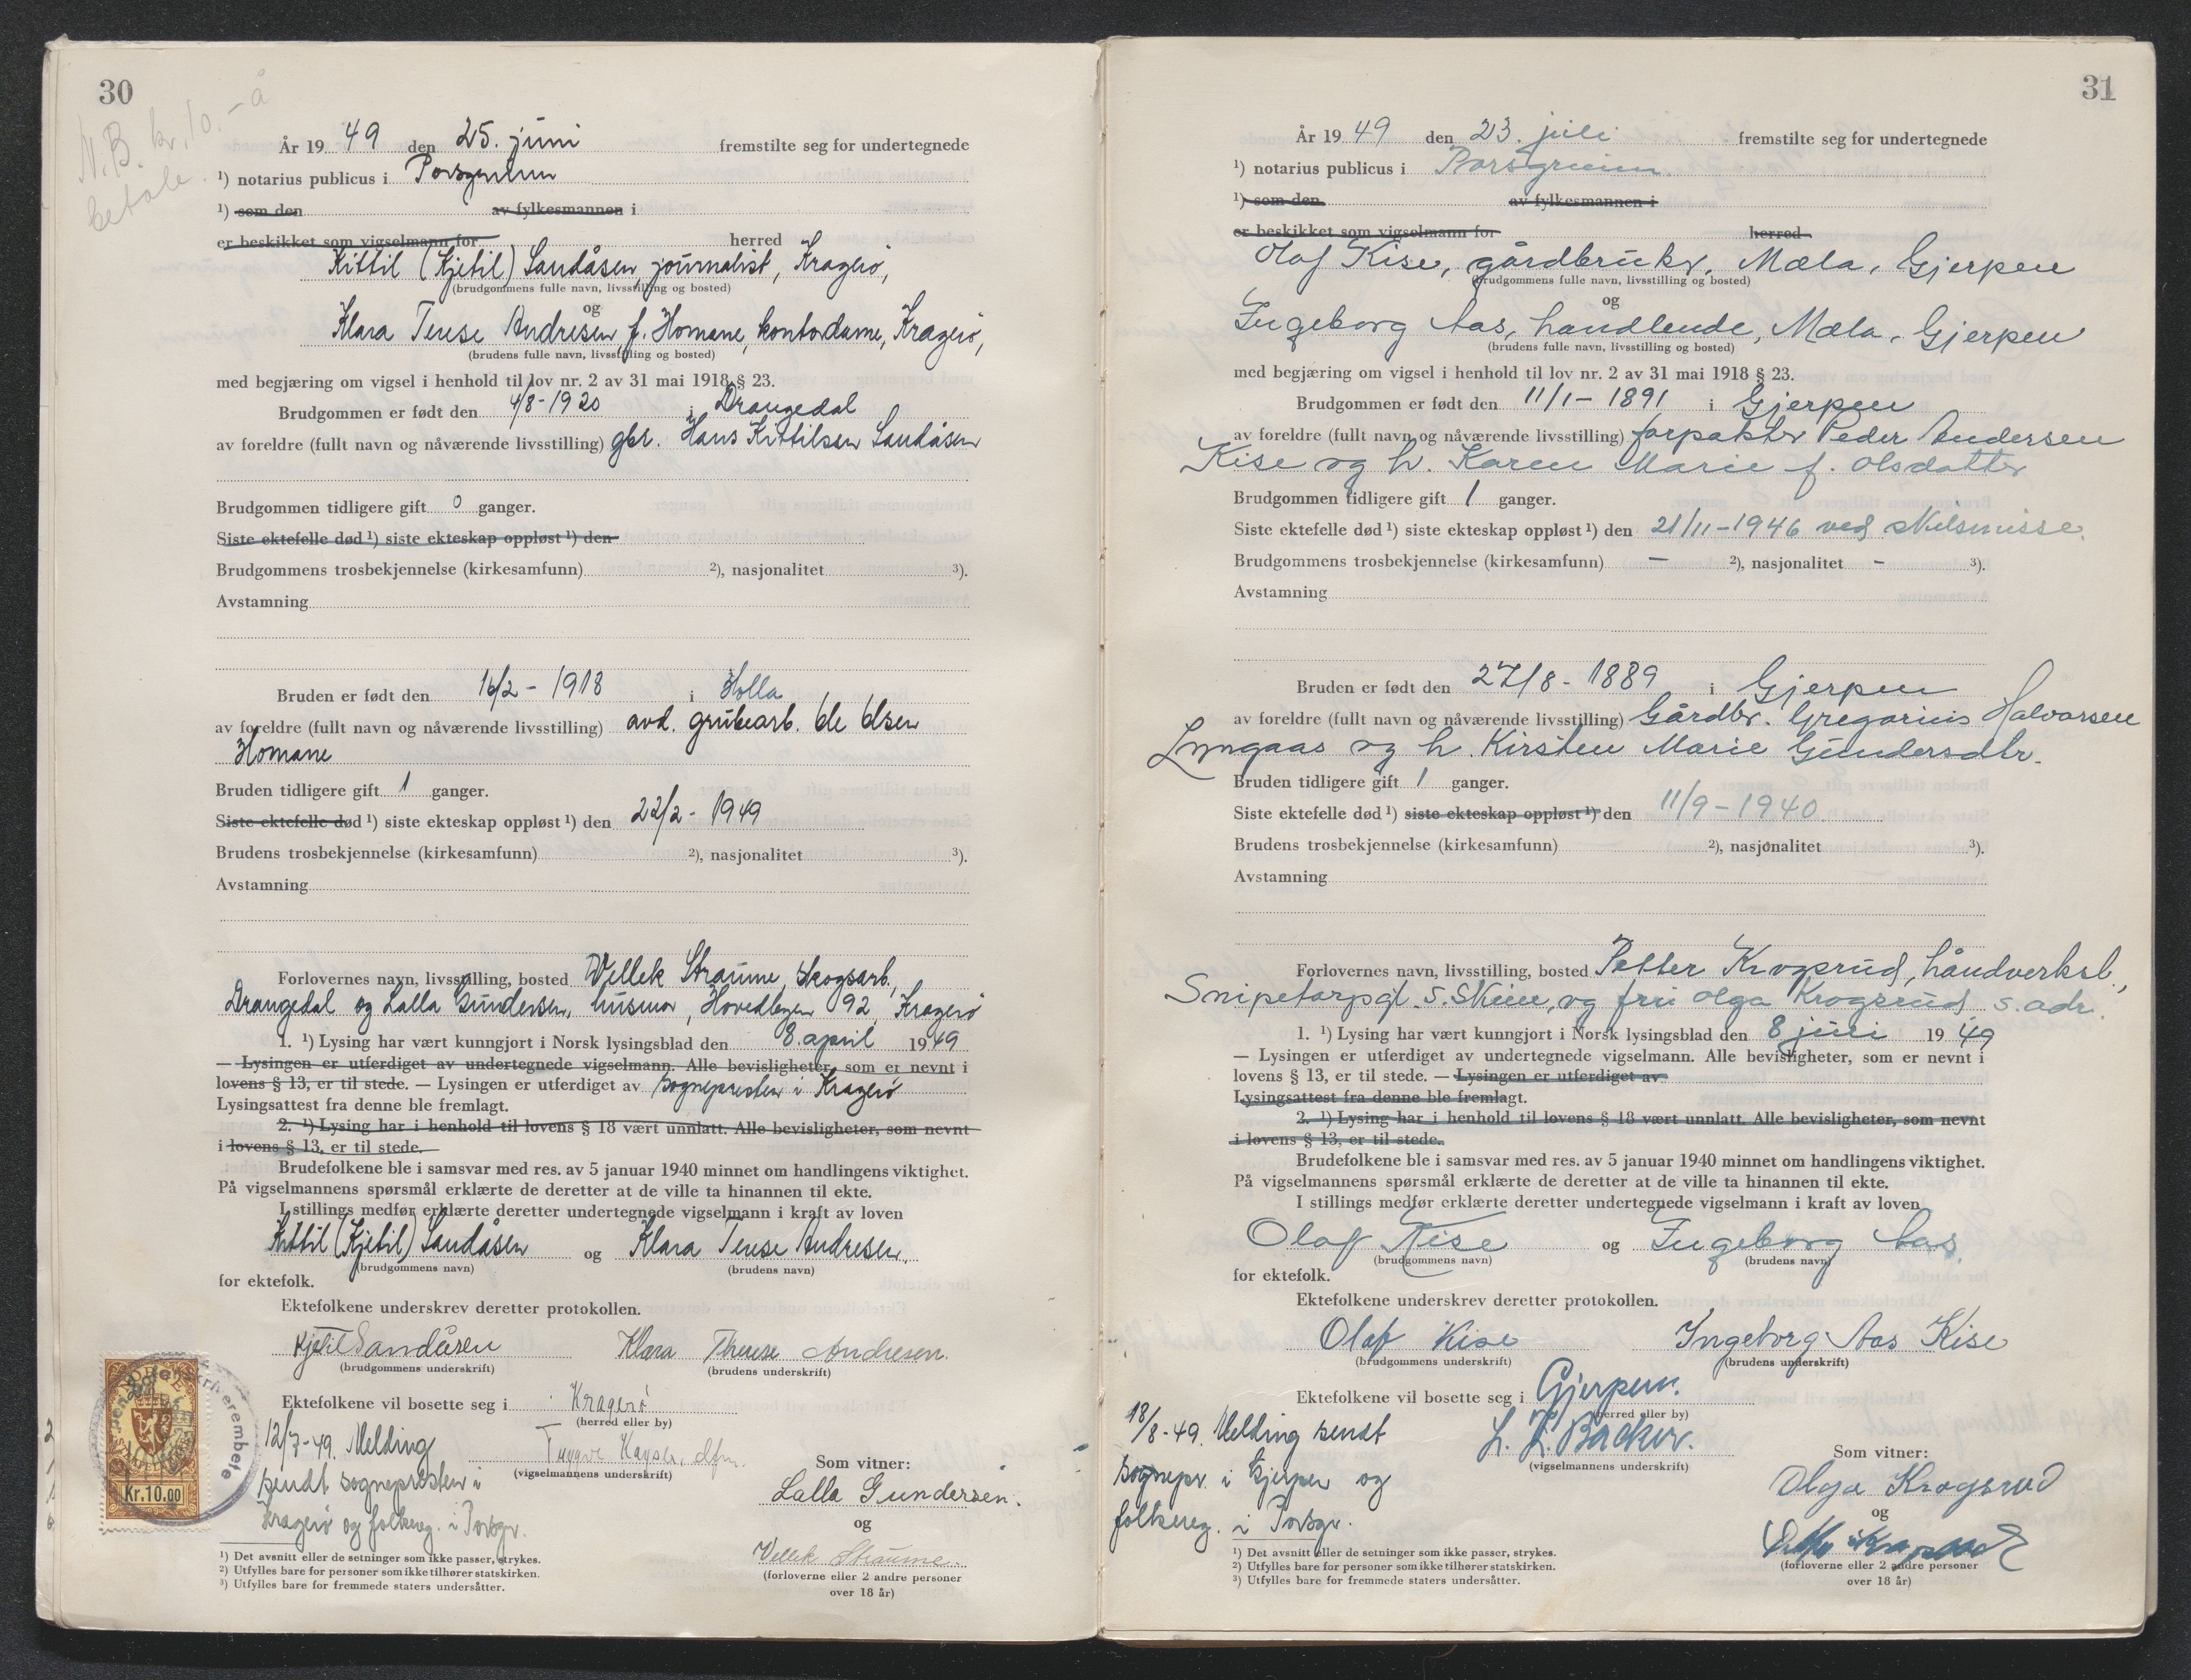 30
N.B. kr. 10.- å
betale.
År 19 49 den 25. juni fremstilte seg for undertegnede
¹) notarius publicus i Porsgrunn
¹) som den av fylkesmannen i
er beskikket som vigselmann for herred
Kittil (Kjetil) Sandåsen, journalist, Kragerø,
(brudgommens fulle navn, livsstilling og bosted)
og
Klara Terese Andresen, f. Homane, kontordame, Kragerø,
(brudens fulle navn, livsstilling og bosted)
med begjæring om vigsel i henhold til lov nr. 2 av 31 mai 1918 § 23.
Brudgommen er født den 4/8-1920 i Drangedal
av foreldre (fullt navn og nåværende livsstilling) gbr. Hans Kittilsen Sandåsen
Brudgommen tidligere gift 0 ganger.
Siste ektefelle død ¹) siste ekteskap oppløst ¹) den
Brudgommens trosbekjennelse (kirkesamfunn) ²), nasjonalitet ³).
Avstamning
Bruden er født den 16/2 - 1918 i Holla
av foreldre (fullt navn og nåværende livsstilling) avd. grubearb. Ole Olsen
Homane
Bruden tidligere gift 1 ganger.
Siste ektefelle død ¹) siste ekteskap oppløst ¹) den 22/2 - 1949
Brudens trosbekjennelse (kirkesamfunn) ²), nasjonalitet ³).
Avstamning
Forlovernes navn, livsstilling, bosted Vellek Straume, skogsarb.,
Drangedal og Lalla Gundersen, husmor, Hovedbgen 92, Kragerø
1. ¹) Lysing har vært kunngjort i Norsk lysingsblad den 8. april 1949
— Lysingen er utferdiget av undertegnede vigselmann. Alle bevisligheter, som er nevnt i
lovens § 13, er til stede. — Lysingen er utferdiget av sognepresten i Kragerø
Lysingsattest fra denne ble fremlagt.
2. ¹) Lysing har i henhold til lovens § 18 vært unnlatt. Alle bevisligheter, som nevnt
i lovens § 13, er til stede.
Brudefolkene ble i samsvar med res. av 5 januar 1940 minnet om handlingens viktighet.
På vigselmannens spørsmål erklærte de deretter at de ville ta hinannen til ekte.
I stillings medfør erklærte deretter undertegnede vigselmann i kraft av loven
Kittil (Kjetil) Sandåsen og Klara Terese Andresen,
(brudgommens navn) (brudens navn)
for ektefolk.
Ektefolkene underskrev deretter protokollen.
Kjetil Sandåsen Klara Therese Andresen.
(brudgommens underskrift) (brudens underskrift)
Ektefolkene vil bosette seg i Kragerø
(herred eller by)
12/7-49. Melding
sendt sognepresten i
Kragerø og folkereg. i Porsgr.
Trygve Kayser, dfm.
(vigselmannens underskrift)
Kr.10.00
Som vitner:
Lalla Gundersen.
og
Vellek Straume.
(forloverne eller 2 andre personer
over 18 år)
¹) Det avsnitt eller de setninger som ikke passer, strykes.
²) Utfylles bare for personer som ikke tilhører statskirken.
³) Utfylles bare for fremmede staters undersåtter.
31
År 19 49 den 23. juli fremstilte seg for undertegnede
¹) notarius publicus i Porsgrunn.
¹) som den av fylkesmannen i
er beskikket som vigselmann for herred
Olaf Kise, gårdbruker, Mæla, Gjerpen
(brudgommens fulle navn, livsstilling og bosted)
og
Ingeborg Aas, handlende, Mæla, Gjerpen
(brudens fulle navn, livsstilling og bosted)
med begjæring om vigsel i henhold til lov nr. 2 av 31 mai 1918 § 23.
Brudgommen er født den 11/1- 1891 i Gjerpen
av foreldre (fullt navn og nåværende livsstilling) forpakter Peder Andersen
Kise og h. Karen Marie f. Olsdatter
Brudgommen tidligere gift 1 ganger.
Siste ektefelle død ¹) siste ekteskap oppløst ¹) den 21/11-1946 ved skilsmisse.
Brudgommens trosbekjennelse (kirkesamfunn) — ²), nasjonalitet - ³).
Avstamning
Bruden er født den 27/8- 1889 i Gjerpen
av foreldre (fullt navn og nåværende livsstilling) Gårdbr. Gregorius Halvorsen
Lyngaas og h. Kirsten Marie Gundersdtr.
Bruden tidligere gift 1 ganger.
Siste ektefelle død ¹) siste ekteskap oppløst ¹) den 11/9-1940.
Brudens trosbekjennelse (kirkesamfunn) ²), nasjonalitet ³).
Avstamning
Forlovernes navn, livsstilling, bosted Petter Krogsrud, håndverksb.,
Snipetorpgt. 5. Skien, og fru Olga Krogsrud s. adr.
1. ¹) Lysing har vært kunngjort i Norsk lysingsblad den 8 juli 1949
— Lysingen er utferdiget av undertegnede vigselmann. Alle bevisligheter, som er nevnt i
lovens § 13, er til stede. — Lysingen er utferdiget av
Lysingsattest fra denne ble fremlagt.
2. ¹) Lysing har i henhold til lovens § 18 vært unnlatt. Alle bevisligheter, som nevnt
i lovens § 13, er til stede.
Brudefolkene ble i samsvar med res. av 5 januar 1940 minnet om handlingens viktighet.
På vigselmannens spørsmål erklærte de deretter at de ville ta hinannen til ekte.
I stillings medfør erklærte deretter undertegnede vigselmann i kraft av loven
Olaf Kise og Ingeborg Aas
(brudgommens navn) (brudens navn)
for ektefolk.
Ektefolkene underskrev deretter protokollen.
Olaf Kise Ingeborg Aas Kise
(brudgommens underskrift) (brudens underskrift)
Ektefolkene vil bosette seg i Gjerpen.
(herred eller by)
18/8-49. Melding sendt
sognepr. i Gjerpen og
folkereg. i Porsgr.
(vigselmannens underskrift)
Som vitner:
Olga Krogsrud
og
(forloverne eller 2 andre personer
over 18 år)
¹) Det avsnitt eller de setninger som ikke passer, strykes.
²) Utfylles bare for personer som ikke tilhører statskirken.
³) Utfylles bare for fremmede staters undersåtter.